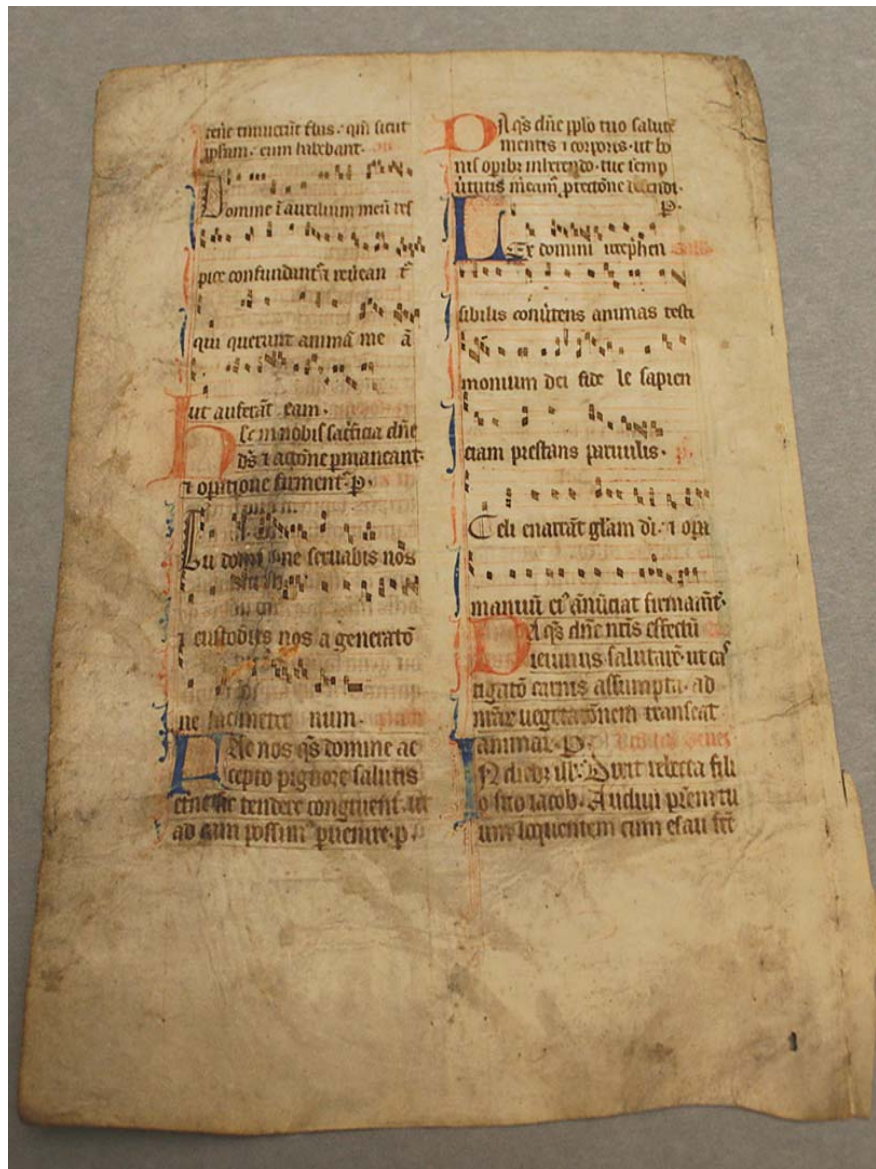 tenē timuerūt eius · qm̄ sicut
ipsum · eum habebant ·
Domine ī auxilium meū res
pice confundant̄ ⁊ reuean t̄
qui querunt animā me ā
ut auferāt eam ·
hec in nobis sac̄ficia dn̄e
ds̄ ⁊ actōne pmaneant ·
⁊ opatione firment̄ · p̄ ·
Tu domine seruabis nos
⁊ custodies nos a generatō
ne hac in eternum ·
Fac nos qs̄ domine ac
cepto pignore salutis
tendere congruent̄ · ut
ad eam possim⁹ puenire · p ·
Da qs̄ dn̄e pplo tuo salutē
mentis ⁊ corporis · ut bo
nis opibꝫ inherendo · tue semp
uirtutis mēam̄ ptectōne defendi ·
p̄ ·
Lex domini irrephen
sibilis conūtens animas testi
monium dei fide le sapien
ciam prestans paruulis ·
Celi enarrāt gl̄am di · ⁊ opa
manuū ei⁹ ān̄ūciat firmam̄t ·
Da qs̄ dn̄e nr̄is effectū
ieiuniis salutarē · ut cas
tigatō carnis assumpta · ad
nr̄ar uegetatōnem transeat
animar · p̄ ·
In diebꝫ ill̄ · Dixit rebecca fili
o suo iacob · Audiui pr̄em tu
um loquentem cum esau fr̄e